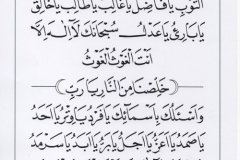 التَّوْبِ يَا فَاضِلُ يَا غَالِبُ يَا طَالِبُ يَا خَالِقُ
يَا بَارِئُ يَا عَدْلُ سُبْحَانَكَ لَا إِلٰهَ إِلَّا
أَنْتَ الْغَوْثُ الْغَوْثُ
خَلِّصْنَا مِنَ النَّارِ يَا رَبِّ
وَأَسْئَلُكَ بِأَسْمَائِكَ يَا فَرْدُ يَا وِتْرُ يَا أَحَدُ
يَا صَمَدُ يَا أَعَزُّ يَا أَجَلُّ يَا أَبَرُّ يَا أَبَدُ يَا سَرْمَدُ